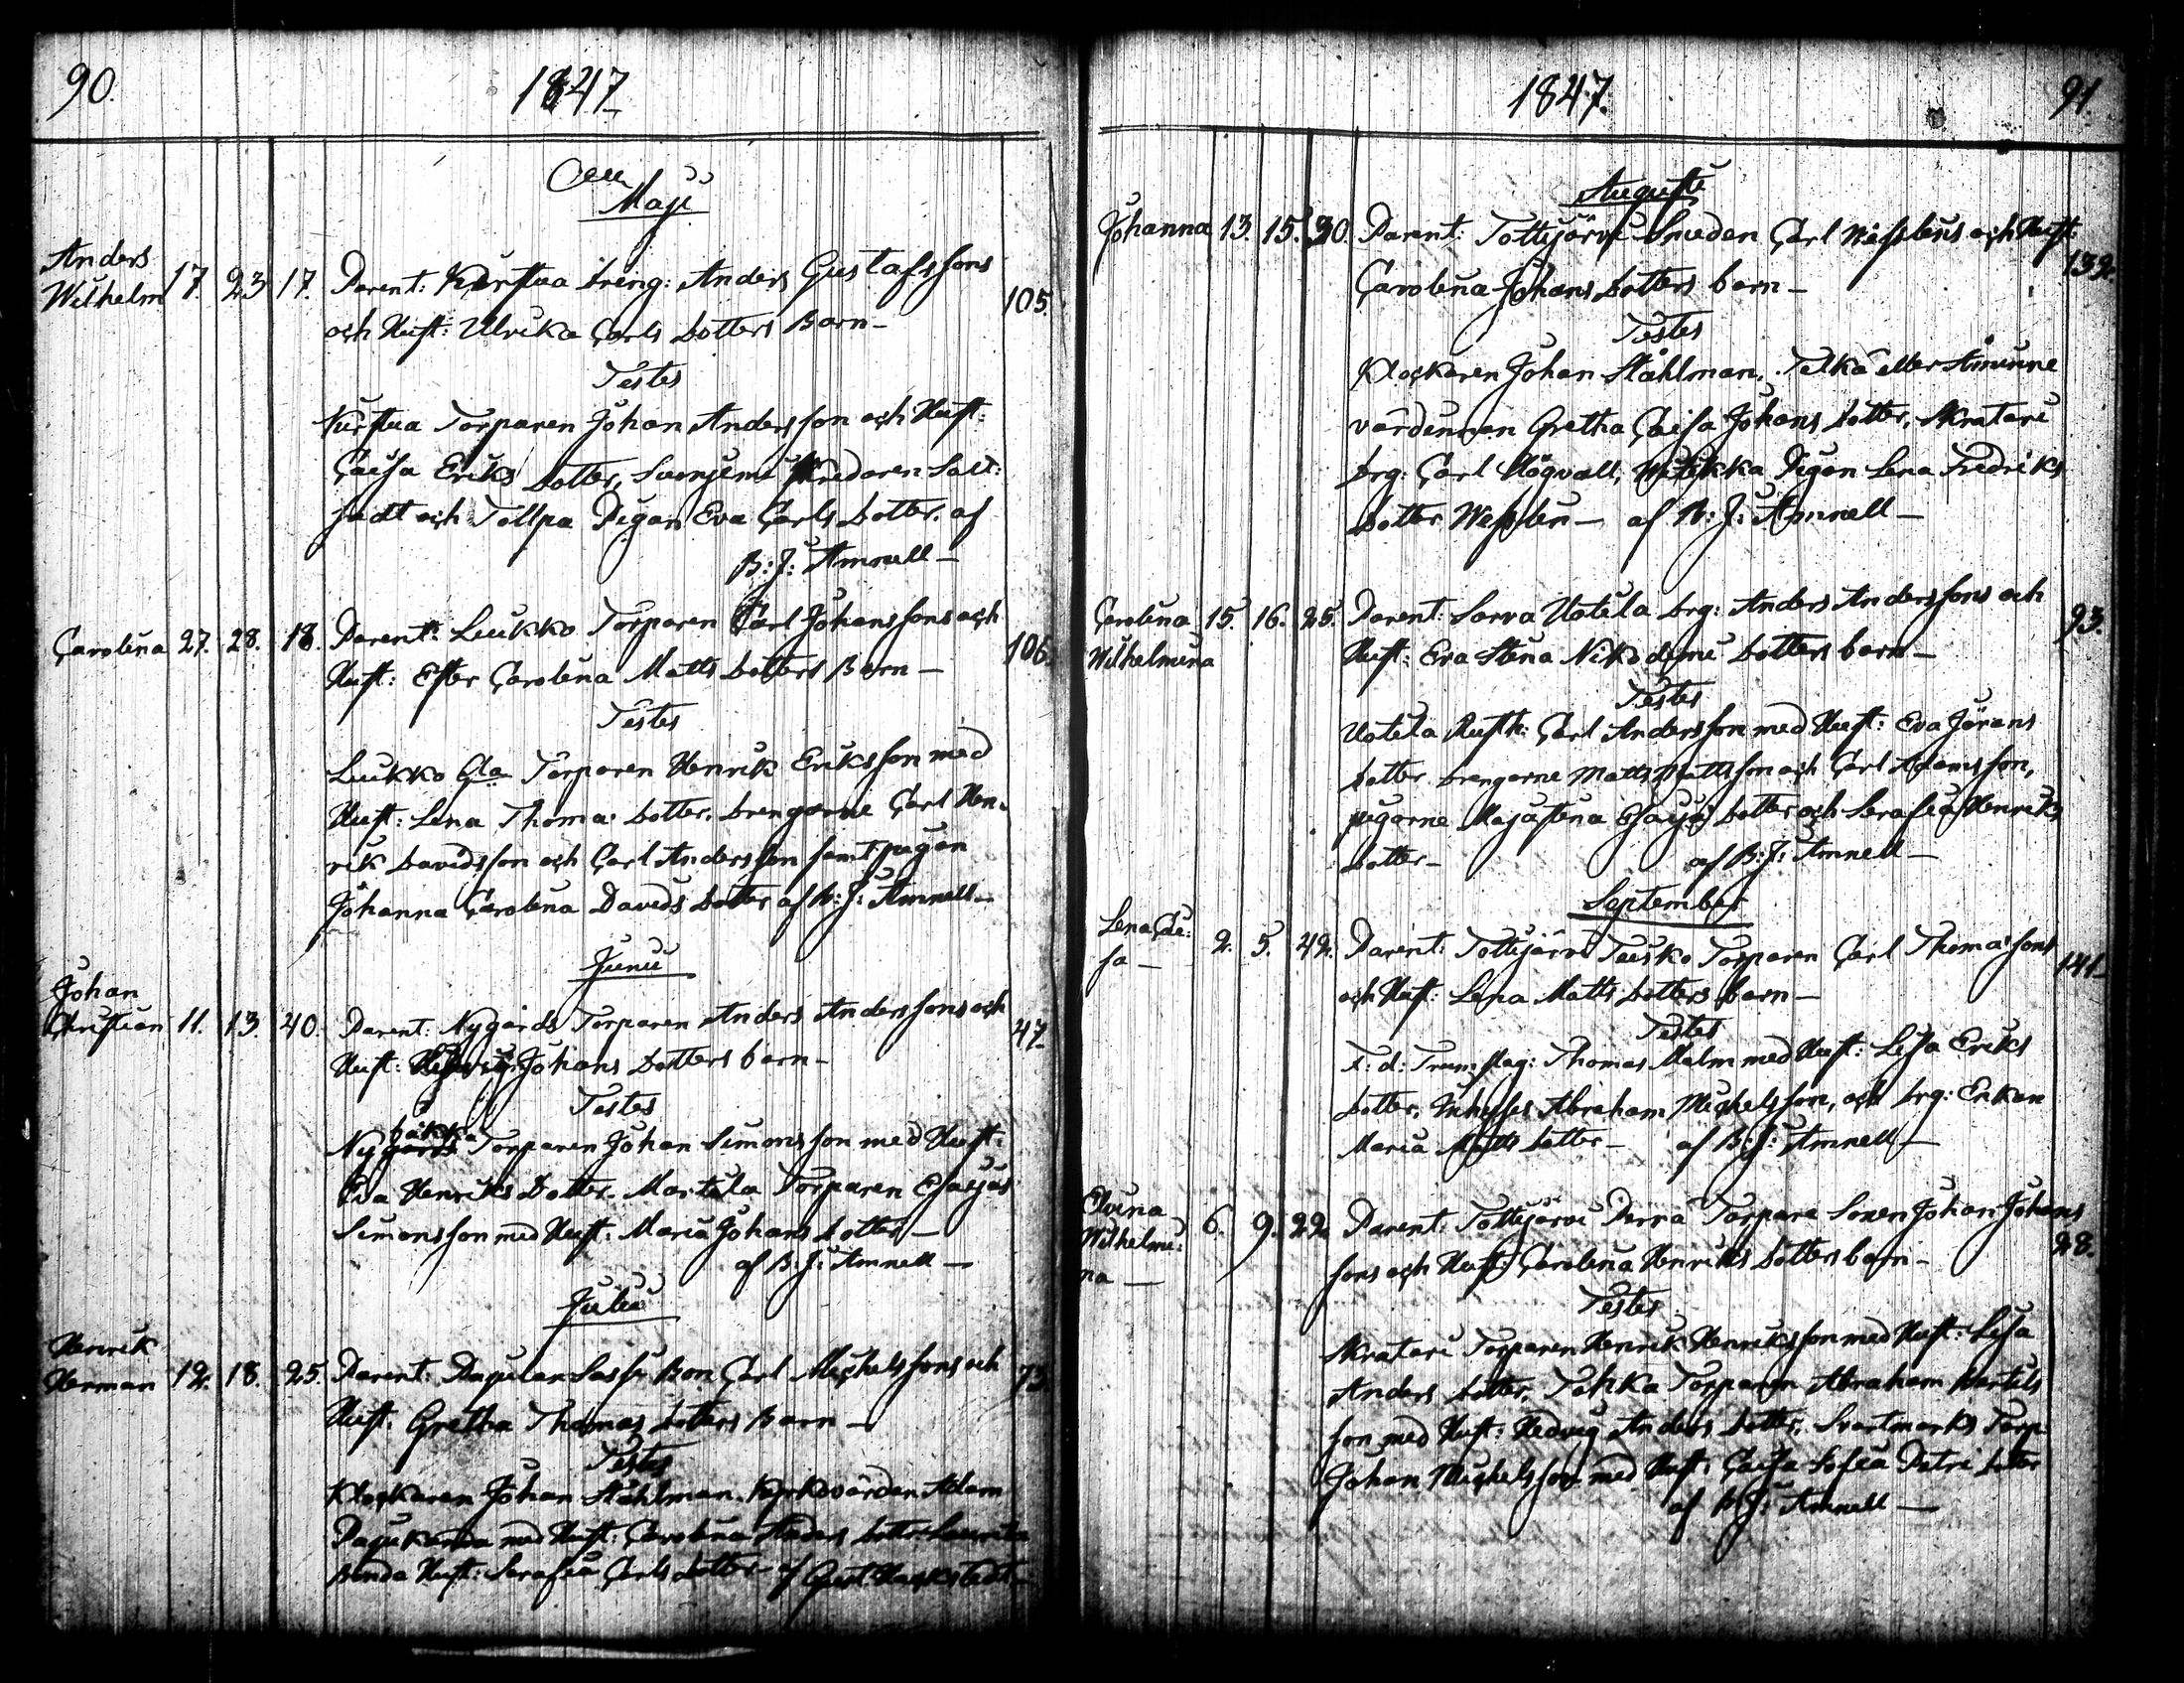 90.
1847
Maji
Anders
Wilhelm 17. 23 17. Parent: Kurstua Dreng: Anders Gustafssons
och Hust: Ulrika Carls dotters Barn – 105.
Testes
Kurstua Torparen Johan Andersson och Hust:
Caisa Eriks dotter, Sarvjemi
och Tollpa Pigan Eva Carls dotter. af
B: J: Amnell –
Carolina 27. 28. 18. Parent: Luukko Torparen Carl Johanssons och
Hust: Ester Carolina Matts dotters Barn – 106.
Testes
Luukko Gla Torparen Henrik Eriksson med
Hust: Lena Thomæ dotter, drengarne Carl Hen-
rik Davidsson och Carl Andersson samt pigan
Johanna Carolina Davids dotter af B: J: Amnell –
Junii
Johan
Christian 11. 13. 40. Parent: Nygårds Torparen Anders Anderssons och
Hust: Johans dotters barn – 47.
Testes
backa
Nygårds Torparen Johan Simonsson med Hust:
Eva Henriks Dotter. Martila Torparen Esaijas
Simonsson med Hust: Maria Johans dotter –
af B: J: Amnell –
Julii
Henrik
Herman 12. 18. 25. Parent: Pajulan Sassi Bon. Carl Michelssons och
Hust: Gretha Thomas dotters Barn – 73.
Testes
Klockaren Johan Ståhlman. Kyrkovärden Adam
med Hust: Carolina Anders dotter Laurila
Bonda Hust: Serafia Carls dotter – af Gust: Hackstedt –
1847.
91.
Augusti
Johanna 13. 15. 30. Parent: Tottijärvi Smeden Carl Wesslins och Hust:
Carolina Johans dotters barn – 132.
Testes
Klockaren Johan Ståhlman. eller
värdinnan Gretha Caisa Johans dotter, Kratari
drg: Carl Högvall, Pigan Lena Fredriks
dotter Wesslin – af B: J: Amnell –
Carolina
Wilhelmina 15. 16. 25. Parent: Sorva Uotila drg: Anders Anderssons och
Hust: Eva Stina Nikodemi dotters barn – 93.
Testes
Uotila Rusth: Carl Andersson med Hust: Eva Jörans
dotter drengarne Matts Mattsson och Carl Adamsson,
pigorne Maja Stina Esaijæ dotter och Serafia Henriks
dotter – af B: J: Amnell –
September
Lena Cai:
sa – 2. 5. 42. Parent: Tottijärvi Torparen Carl Thomæ sons
och Hust: Lena Matts dotters barn – 141
Testes
F: d: Trumslag: Thomas Malm med Hust: Lisa Eriks
dotter, Inhyses Abraham Michelsson, och drg: Enkan
Maria Matts dotter – af B: J: Amnell –
Elvina
Wilhelmi:
na – 6. 9. 22. Parent: Tottijärvi Perra Torpare Sonen Johan Johans
sons och Hust: Carolina Henriks dotters barn – 28.
Testes
Kratari Torparen Henrik Henriksson med Hust: Lisa
Anders dotter, Torparen Abraham Bertils
son med Hust: Hedvig Anders dotter, Svartmarks Torp:
Johan Michelsson med Hust: Caisa Sofia Petri doter
af B: J: Amnell –